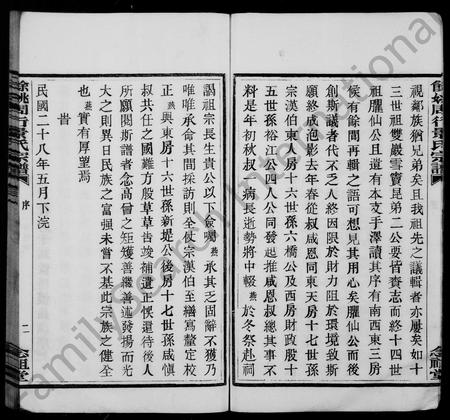 餘姚周行景氏宗譜
視鄰族猶兄弟矣且我祖先之議輯者亦屢矣如十
三世祖雙嚴雪竇昆弟二公要皆齎志而終十四世
祖鴈仙公且遺有本支手澤讀其序有南西東三房
俟有餘閒再輯之語可想見其用心矣鴈仙公而後
創斯議者代不乏人終因限於財力阻於環境致斯
願終成泡影去年春從叔咸恩同東天房十七世孫
宗漢伯東房十六世孫六橋公及西房財政股十
五世孫裕江公四人公同發起推咸恩叔總其事不
料是年初秋叔一病長逝勢將中輟燕於冬祭赴祠
謁祖宗長生貴公以下僉囑燕承其乏固辭不獲乃
唯唯承命其間採訪則全仗宗漢伯至繕寫彙校指
正燕與東房十六世孫新堤公後房十七世孫咸慎
叔共任之國難方殷草草告竣補遺正悞還待後人
所願閱斯譜者念高曾之矩矱善繼善述發揚而光
大之則異日民族之富强未嘗不基此宗族之健全
也燕實有厚望焉
旹
民國二十八年五月下浣
餘姚周行景氏宗譜 序 二 念祖堂
FamilySearch International